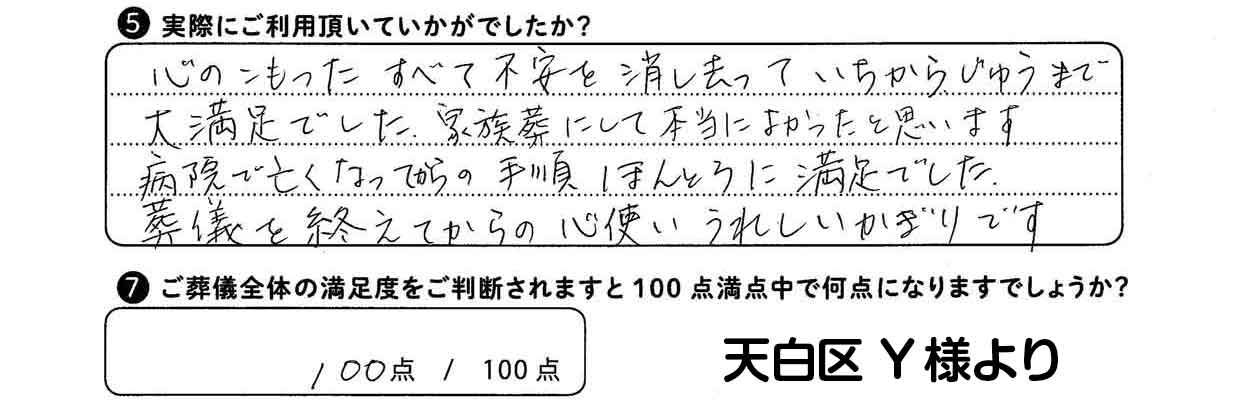 ❺ 実際にご利用頂いていかがでしたか?
心のこもった すべて不安を消し去って いちからじゅうまで
大満足でした. 家族葬にして本当によかったと思います
病院で亡くなってからの手順 ほんとうに満足でした.
葬儀を終えてからの心使い うれしいかぎりです
❼ ご葬儀全体の満足度をご判断されますと100点満点中で何点になりますでしょうか?
100点 / 100点
天白区 Y様より